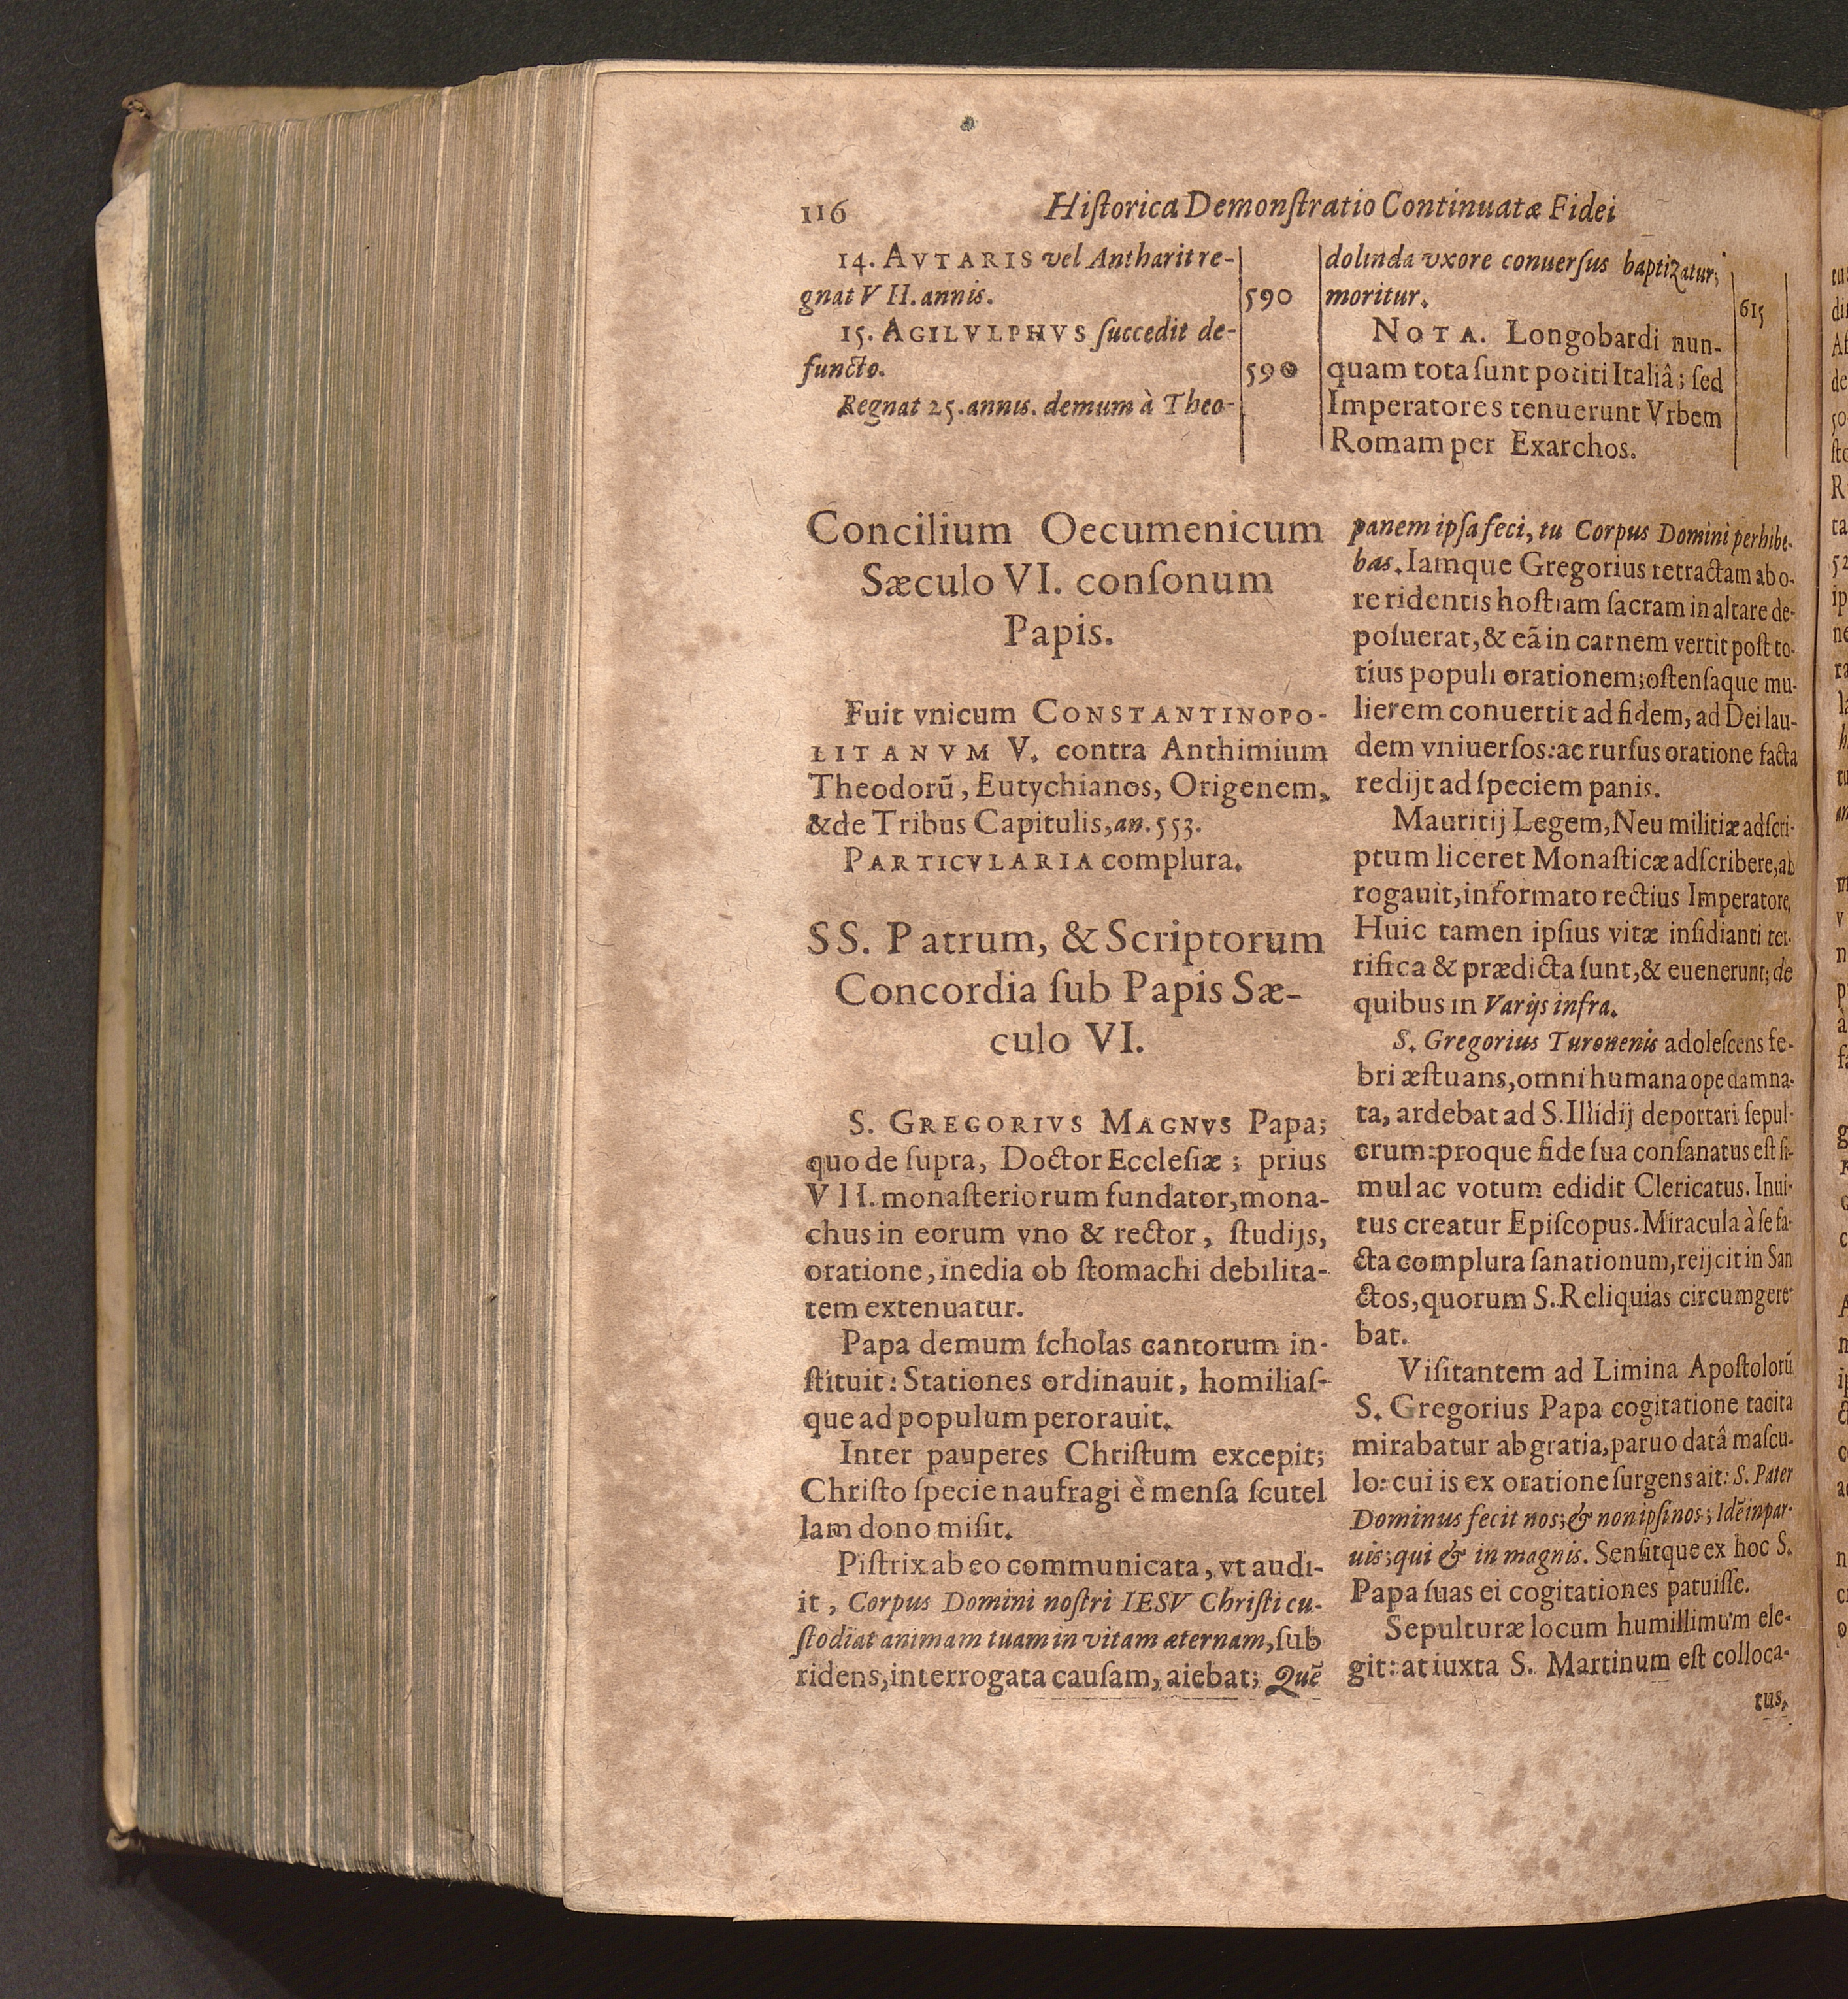 116 Hiſtorica Demonſtratio Continuatæ Fidei
14. AVTARIS vel Antharit re-
gnat VII. annis. 590
15. AGILVLPHVS ſuccedit de-
functo. 590
Regnat 25. annis. demum à Theo-
dolinda vxore conuerſus baptizatur;
moritur. 615
NOTA. Longobardi nun-
quam tota ſunt potiti Italiâ; ſed
Imperatores tenuerunt Vrbem
Romam per Exarchos.
Concilium Oecumenicum
Sæculo VI. conſonum
Papis.
Fuit vnicum CONSTANTINOPO-
LITANVM V. contra Anthimium
Theodorũ, Eutychianos, Origenem,
& de Tribus Capitulis, an. 553.
PARTICVLARIA complura.
SS. Patrum, & Scriptorum
Concordia ſub Papis Sæ-
culo VI.
S. GREGORIVS MAGNVS Papa;
quo de ſupra, Doctor Eccleſiæ; prius
VII. monaſteriorum fundator, mona-
chus in eorum vno & rector, ſtudijs,
oratione, inedia ob ſtomachi debilita-
tem extenuatur.
Papa demum ſcholas cantorum in-
ſtituit: Stationes ordinauit, homiliaſ-
que ad populum perorauit.
Inter pauperes Chriſtum excepit;
Chriſto ſpecie naufragi è menſa ſcutel
lam dono miſit.
Piſtrix ab eo communicata, vt audi-
it, Corpus Domini noſtri IESV Chriſti cu-
ſtodiat animam tuam in vitam æternam, ſub
ridens, interrogata cauſam, aiebat; Quẽ
panem ipſa feci, tu Corpus Domini perhibe-
bas. Iamque Gregorius retractam ab o-
re ridentis hoſtiam ſacram in altare de-
poſuerat, & eã in carnem vertit poſt to-
tius populi orationem; oſtenſaque mu-
lierem conuertit ad fidem, ad Dei lau-
dem vniuerſos: ac rurſus oratione facta
redijt ad ſpeciem panis.
Mauritij Legem, Neu militiæ adſcri-
ptum liceret Monaſticæ adſcribere, ab
rogauit, informato rectius Imperatore,
Huic tamen ipſius vitæ inſidianti ter-
rifica & prædicta ſunt, & euenerunt; de
quibus in Varijs infra.
S. Gregorius Turonenis adoleſcens fe-
bri æſtuans, omni humana ope damna-
ta, ardebat ad S. Illidij deportari ſepul-
crum: proque fide ſua conſanatus eſt ſi-
mul ac votum edidit Clericatus. Inui-
tus creatur Epiſcopus. Miracula à ſe fa-
cta complura ſanationum, reijcit in San
ctos, quorum S. Reliquias circumgere-
bat.
Viſitantem ad Limina Apoſtolorũ
S. Gregorius Papa cogitatione tacita
mirabatur ab gratia, paruo datâ maſcu-
lo: cui is ex oratione ſurgens ait: S. Pater
Dominus fecit nos; & non ipſi nos; Idẽ in par-
uis; qui & in magnis. Senſitque ex hoc S.
Papa ſuas ei cogitationes patuiſſe.
Sepulturæ locum humillimum ele-
git: at iuxta S. Martinum eſt colloca-
tus,